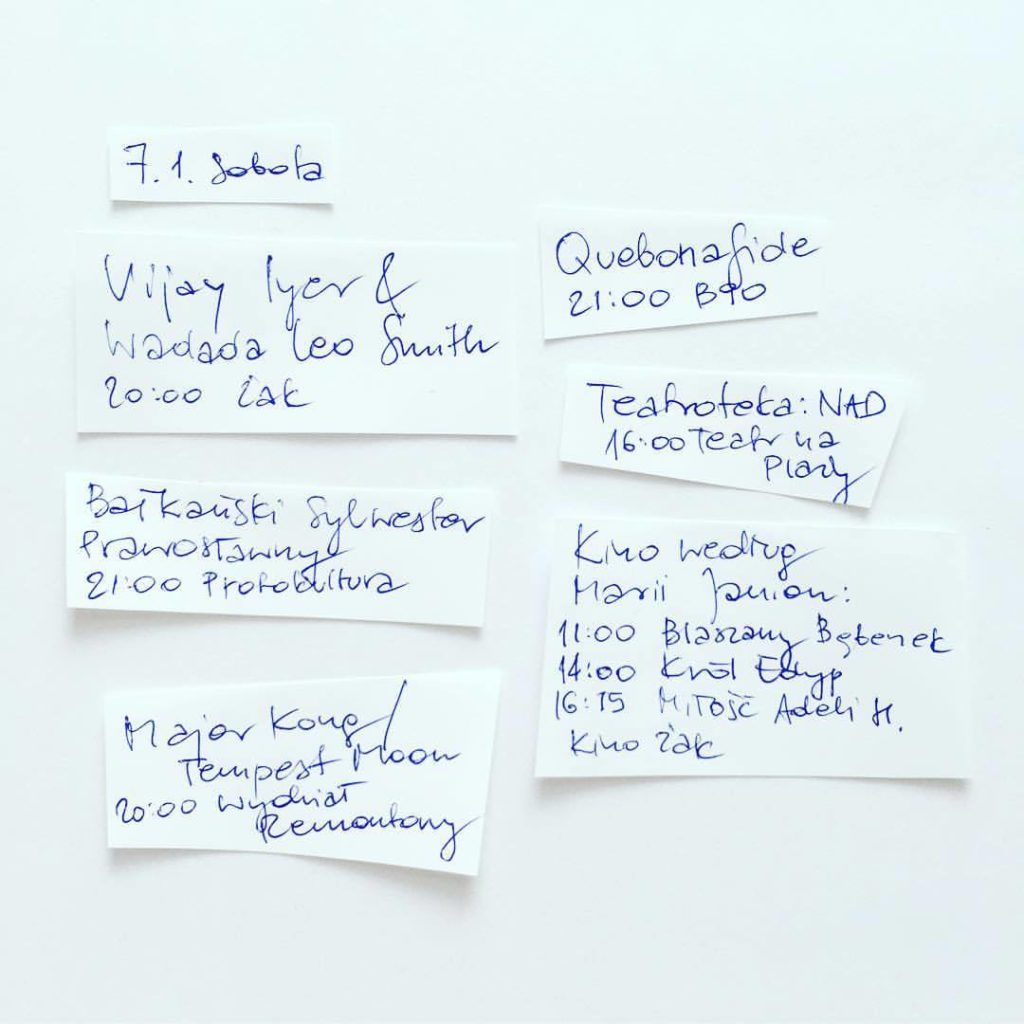 7.1. Sobota
Vijay Iyer &
Wadada Leo Smith
20:00 Żak
Bałkański Sylwester
Prawosławny
21:00 Protokultura
Major Kong/
Tempest Moon
20:00 Wydział
Remontowy
Quebonafide
21:00 B90
Teatroteka: NAD
16:00 Teatr na
Plaży
Kino według
Marii Janion:
11:00 Blaszany Bębenek
14:00 Król Edyp
16:15 Miłość Adeli H.
Kino Żak